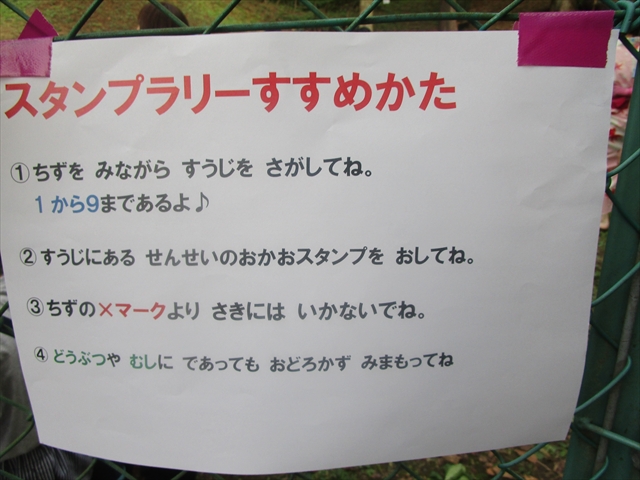 スタンプラリーすすめかた
①ちずを みながら すうじを さがしてね。
1から9まであるよ♪
②すうじにある せんせいのおかおスタンプを おしてね。
③ちずの×マークより さきには いかないでね。
④どうぶつや むしに であっても おどろかず みまもってね